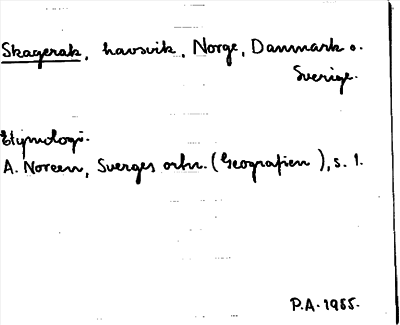 Skagerak, havsvik, Norge, Danmark o.
Sverige.
Etymologi.
A. Noreen, Sverges ortn. (Geografien), s. 1.
P.A. 1955.